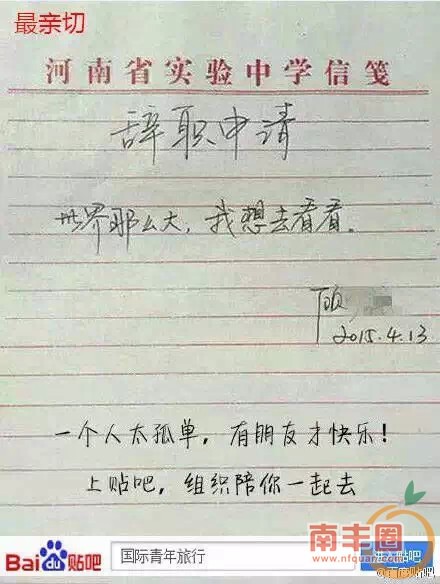 最亲切
河南省实验中学信笺
辞职申请
世界那么大，我想去看看。
顾
2015.4.13
一个人太孤单，有朋友才快乐！
上贴吧，组织陪你一起去
Bai du 贴吧 国际青年旅行 进入贴吧
南丰圈
www.nfquan.com
@百度贴吧